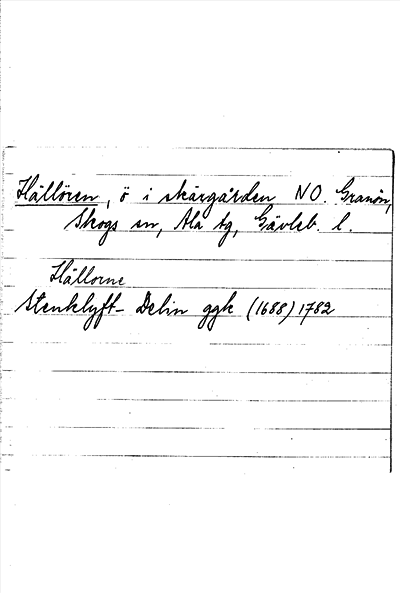 Hällören, ö i skärgården NO. Granön,
Skogs sn, Ala tg, Gävleb. l.
Hällorne
Stenklyft- Delin ggk (1688) 1782